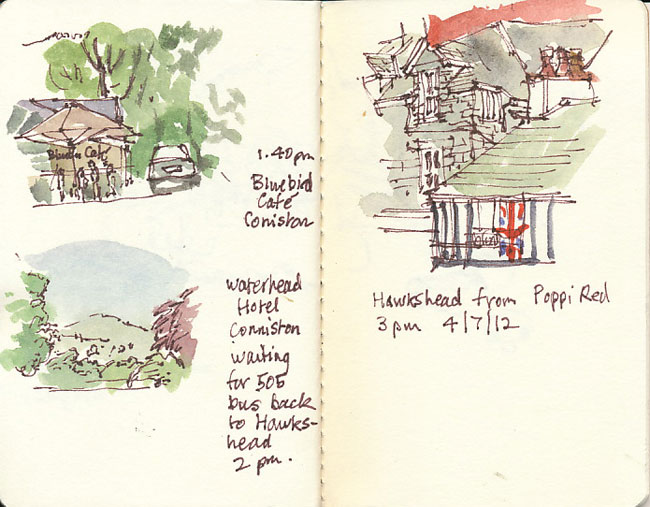 Cafe
1.40pm
Bluebird
Café
Coniston
Waterhead
Hotel
Conniston
waiting
for 505
bus back
to Hawks-
head
2 pm.
Hawkshead from Poppi Red
3pm 4/7/12